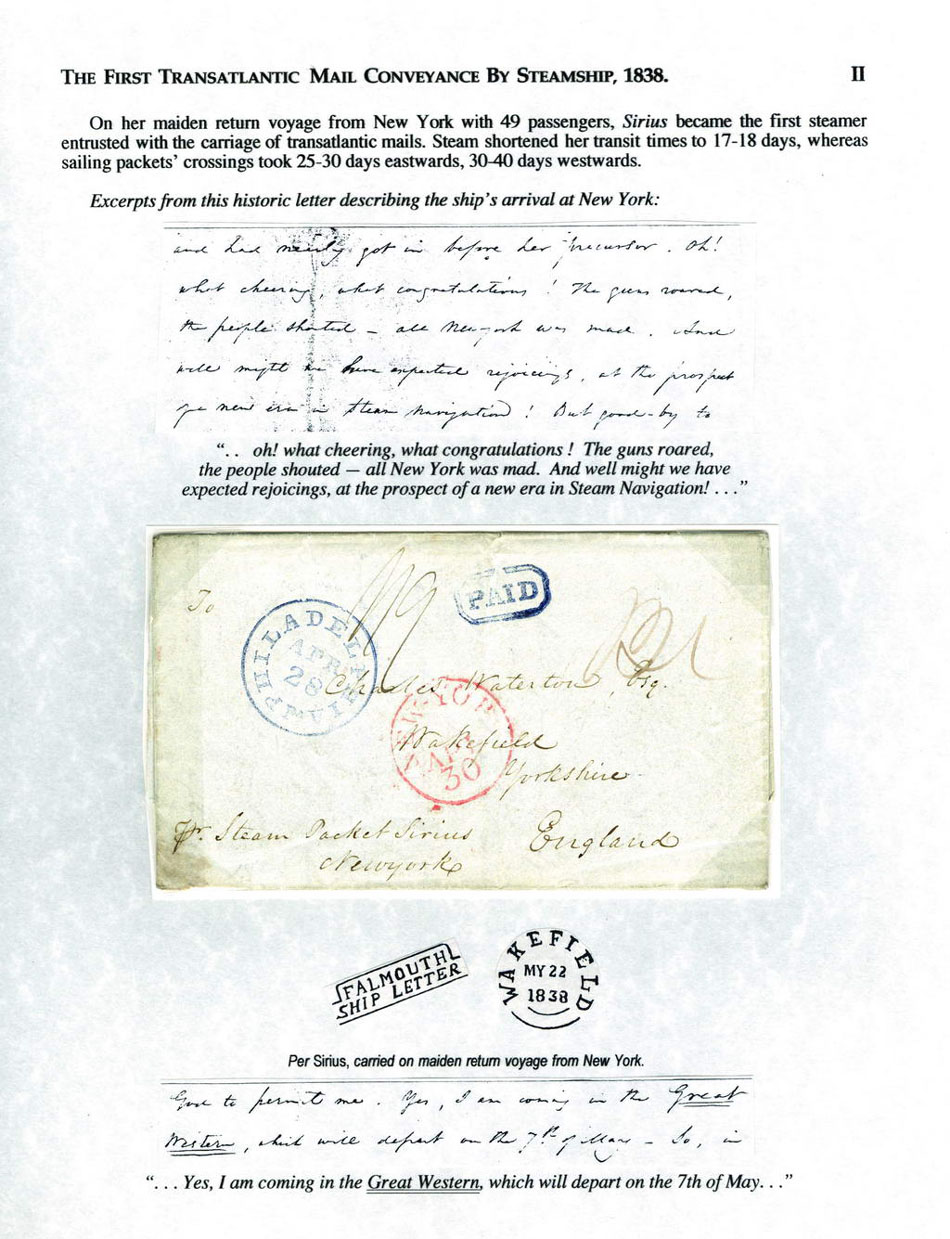 THE FIRST TRANSATLANTIC MAIL CONVEYANCE BY STEAMSHIP, 1838. II
On her maiden return voyage from New York with 49 passengers, Sirius became the first steamer
entrusted with the carriage of transatlantic mails. Steam shortened her transit times to 17-18 days, whereas
sailing packets' crossings took 25-30 days eastwards, 30-40 days westwards.
Excerpts from this historic letter describing the ship's arrival at New York:
and had nearly got in before her precursor. Oh!
what cheering, what congratulations! The guns roared,
the people shouted — all New-york was mad. And
well might we have expected rejoicings, at the prospect
of a new era in Steam Navigation! But good-by to
".. oh! what cheering, what congratulations ! The guns roared,
the people shouted — all New York was mad. And well might we have
expected rejoicings, at the prospect of a new era in Steam Navigation! . . ."
PAID
To
PHILADELPHIA
APR
28
Charles Waterton, Esq.
NEW-YORK
APR
30
Wakefield
Yorkshire
Pr. Steam Packet Sirius
Newyork
England
FALMOUTH
SHIP LETTER
WAKEFIELD
MY 22
1838
Per Sirius, carried on maiden return voyage from New York.
God to permit me. Yes, I am coming in the Great
Western, which will depart on the 7th of May — So, in
". . . Yes, I am coming in the Great Western, which will depart on the 7th of May. . ."